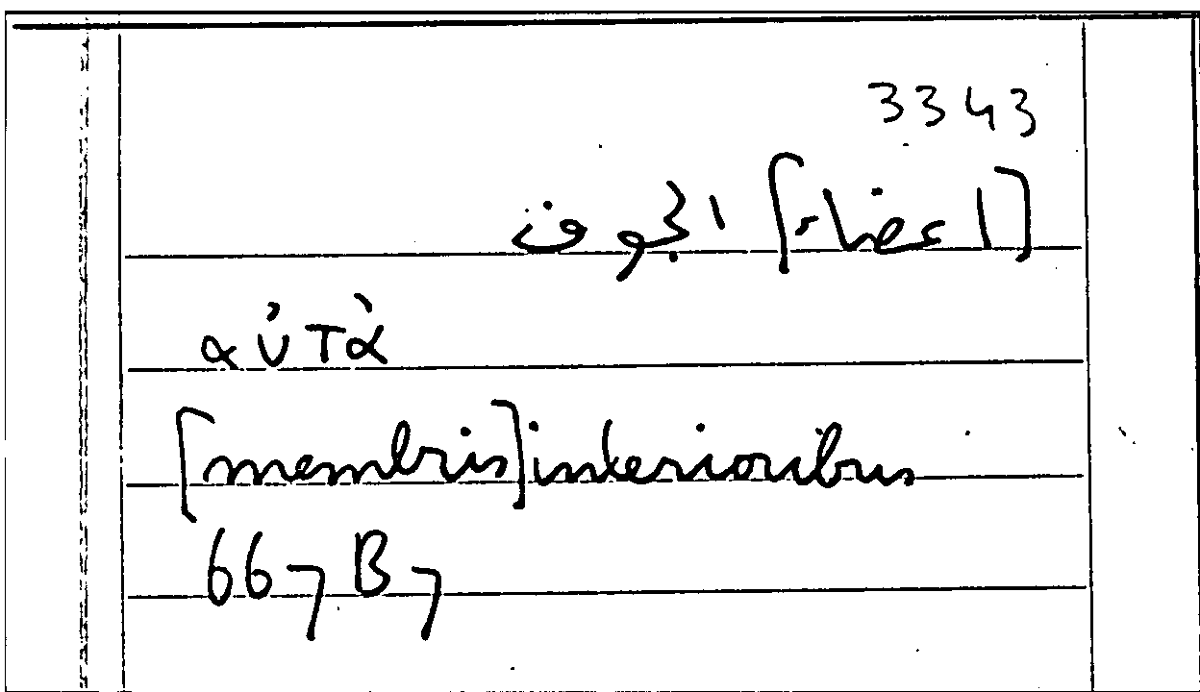 3343
[اعضاء] الجوف
αὐτὰ
[membris] interioribus
667 B 7